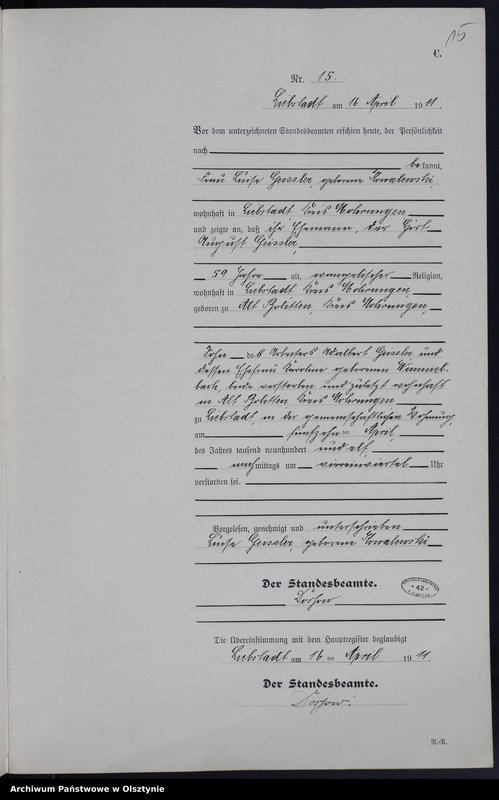 15
C.
Nr. 15.
Liebstadt am 16 April 1911.
Vor dem unterzeichneten Standesbeamten erschien heute, der Persönlichkeit
nach
bekannt,
Frau Luise Geissler, geborene Kowalewski,
wohnhaft in Liebstadt, Kreis Mohrungen
und zeigte an, daß ihr Ehemann, der Hirt
August Geissler,
59 Jahre alt, evangelischer Religion,
wohnhaft in Liebstadt Kreis Mohrungen,
geboren zu Alt Bolitten, Kreis Mohrungen,
Sohn des Arbeiters Adalbert Geissler und
dessen Ehefrau Karoline geborenen Wimmel-
beck, beide verstorben und zuletzt wohnhaft
in Alt Bolitten Kreis Mohrungen
zu Liebstadt, in der gemeinschaftlichen Wohnung,
am fünfzehnten April,
des Jahres tausend neunhundert und elf,
nachmittags um viereinviertel Uhr
verstorben sei.
Vorgelesen, genehmigt und unterschrieben
Luise Geissler, geborene Kowalewski
Der Standesbeamte.
42
Die Übereinstimmung mit dem Hauptregister beglaubigt
Liebstadt am 16ten April 1911.
Der Standesbeamte.
N.-R.
Archiwum Państwowe w Olsztynie